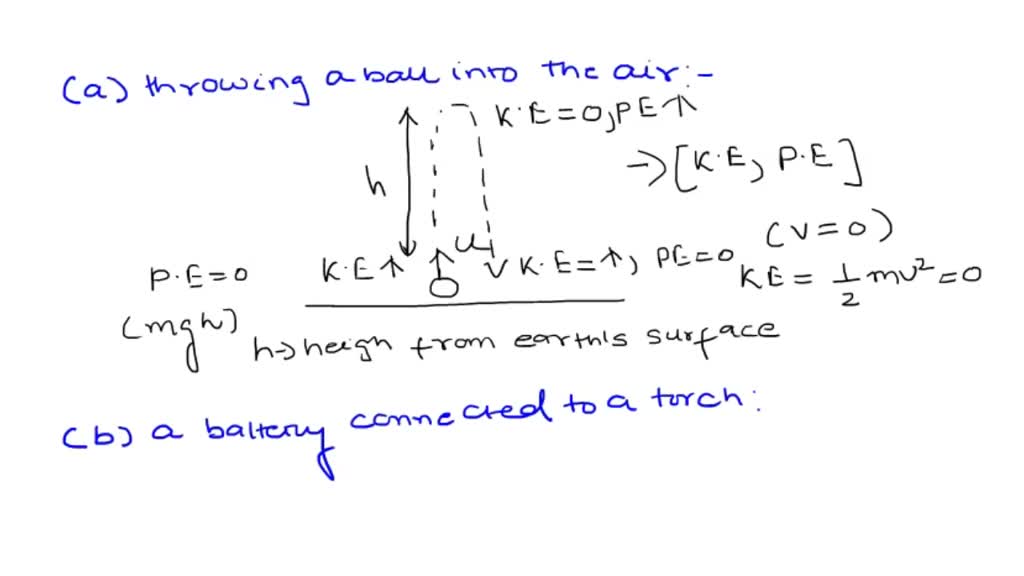 (a) throwing a ball into the air:-
K·E=0, PE↑
→[K·E, P·E]
h
(v=0)
u
P·E=0 K·E↑ K·E=↑, PE=0
KE = 1/2 mv² =0
(mgh)
h→ heigh from earth's surface
(b) a baltery connected to a torch: